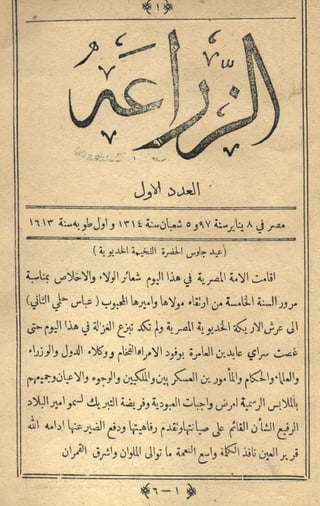 ﴿١﴾
الزّراعه
العدد الاول
مصر في ٨ يناير سنة ٩٧ و ٥ شعبان سنة ١٣١٤ و اول طوبه سنة ١٦١٣
(عيد جلوس الحضرة الفخيمة الخديوية)
اقامت الامة المصرية في هذا اليوم شعائر الولاء والاخلاص بمناسبة
مرور السنة الخامسة من ارتقاء مولاها واميرها المحبوب (عباس حلمي الثاني)
الى عرش الاريكة الخديوية المصرية ولم تكد تبزغ الغزالة في هذا اليوم حتى
غصت سراي عابدين العامرة بوفود الامراء الفخام ووكلاء الدول والوزراء
والعلماء والحكام والمأمورين العسكريين والملكيين والوجوه والاعيان وجميعهم
بالملابس الرسمية لعرض واجبات العبودية وفريضة التبريك لسمو امير البلاد
الرفيع الشأن القائم على صيانتها وتقدم رفاهيتها ودفع الضير عنها ادامه الله
قرير العين نافذ الكلمة واسع النعمة ما توالى الملوان واشرق القمران
﴿١-٦﴾